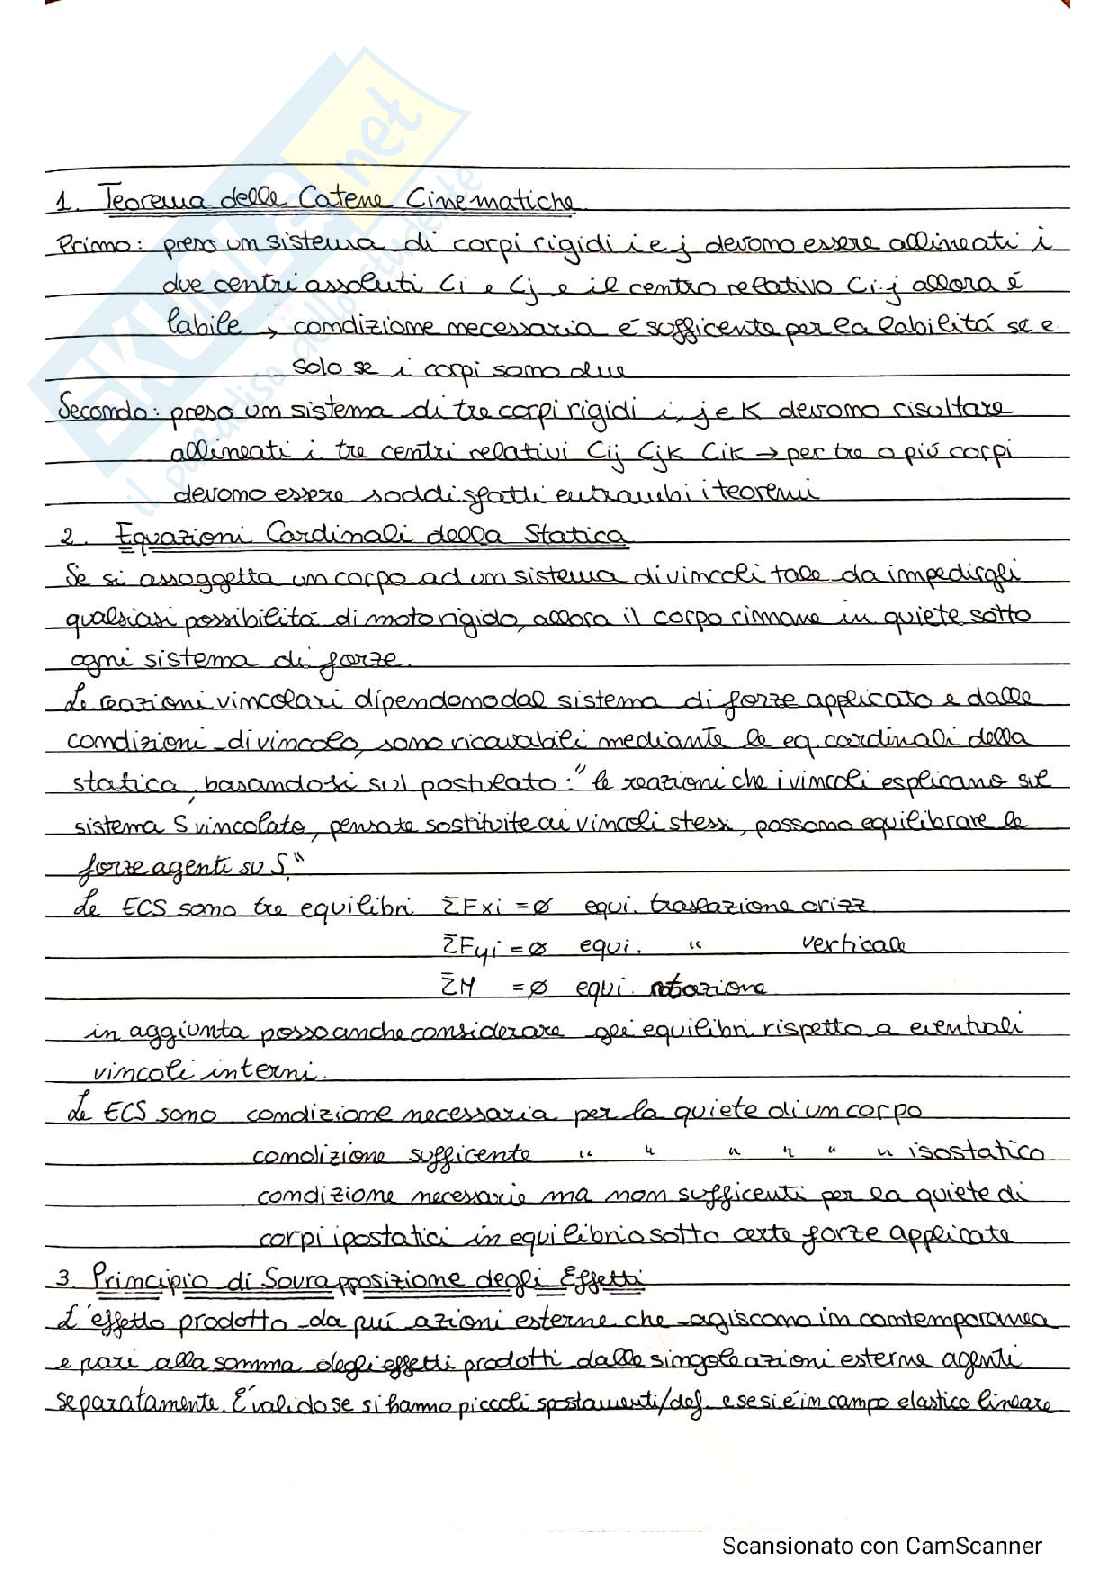 SKUOLA.net
il paradiso dello studente
1. Teorema delle Catene Cinematiche
Primo: preso un sistema di corpi rigidi i e j devono essere allineati i
due centri assoluti Ci e Cj e il centro relativo Cij allora é
labile, condizione necessaria é sufficente per la labilitá se e
solo se i corpi sono due
Secondo: preso un sistema di tre corpi rigidi i, j e K devono risultare
allineati i tre centri relativi Cij Cjk Cik → per tre o piú corpi
devono essere soddisfatti entrambi i teoremi
2. Equazioni Cardinali della Statica
Se si assoggetta un corpo ad un sistema di vincoli tale da impedirgli
qualsiasi possibilitá di moto rigido, allora il corpo rimane in quiete sotto
ogni sistema di forze.
Le reazioni vincolari dipendono dal sistema di forze applicato e dalle
condizioni di vincolo, sono ricavabili mediante le eq. cardinali della
statica, basandosi sul postulato: "le reazioni che i vincoli esplicano sul
sistema S vincolato, pensate sostituite ai vincoli stessi, possono equilibrare le
forze agenti su S."
Le ECS sono tre equilibri ΣFxi = ∅ equi. traslazione orizz
ΣFyi = ∅ equi. " verticale
ΣM = ∅ equi. rotazione
in aggiunta posso anche considerare gli equilibri rispetto a eventuali
vincoli interni.
Le ECS sono condizione necessaria per la quiete di un corpo
condizione sufficente " " " " " " isostatico
condizione necessarie ma non sufficenti per la quiete di
corpi ipostatici in equilibrio sotto certe forze applicate
3. Principio di Sovrapposizione degli Effetti
L'effetto prodotto da piú azioni esterne che agiscono in contemporanea
e pari alla somma degli effetti prodotti dalle singole azioni esterne agenti
separatamente. É valido se si hanno piccoli spostamenti/def. e se si é in campo elastico lineare
Scansionato con CamScanner